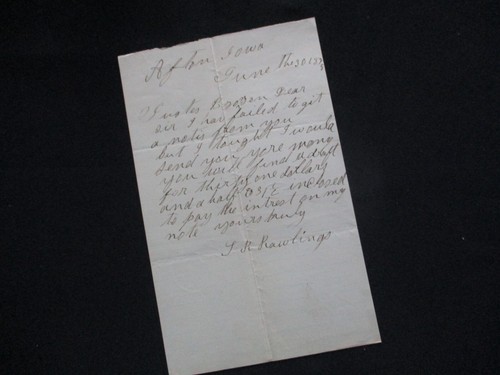 Afton Iowa
June the 30 187
Brown Dear
sir I hav failed to git
a notis from you
but I thought I would
send you yore mony
you will find a draft
for thirty one dollars
and a half 31 50/100 inclosed
to pay the intrest on my
note yours truly
J R Rawlings